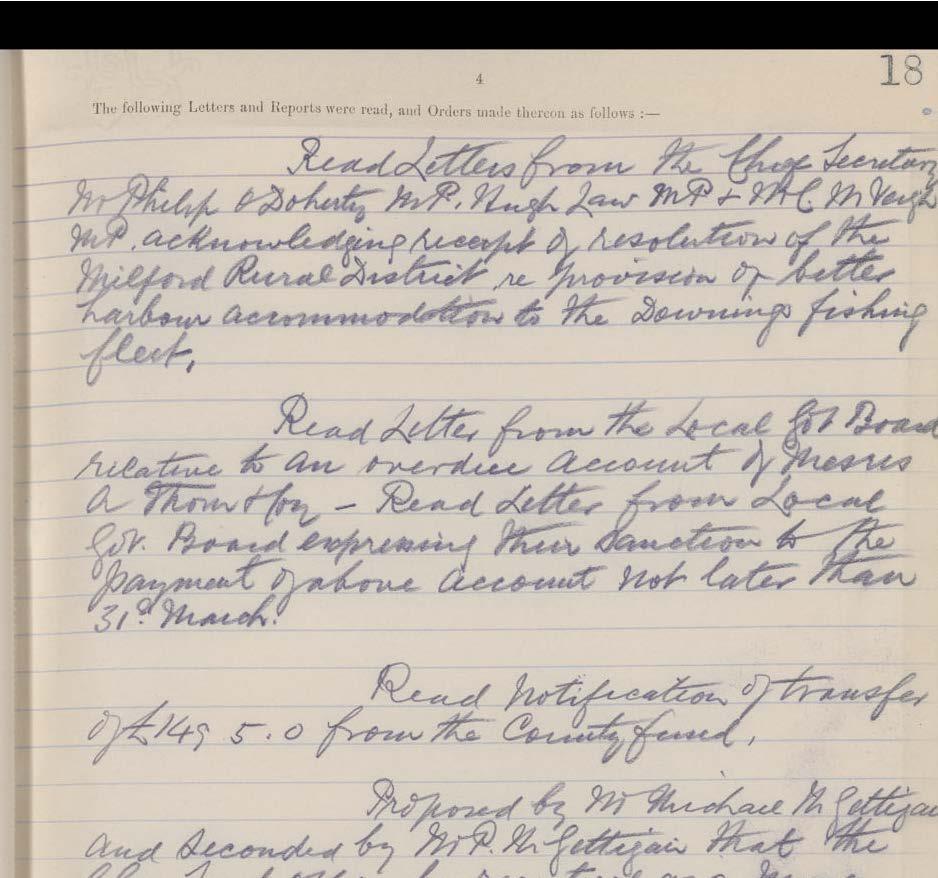 18
4
The following Letters and Reports were read, and Orders made thereon as follows :—
Read Letters from the Chief Secretary
Mr Philip O Doherty M.P. Hugh Law MP &
MP. acknowledging receipt of resolution of the
Milford Rural District re provision of better
harbour accommodation to the Downings fishing
fleet.
Read Letter from the Local Govt Board
relative to an overdue account of Messrs
A Thom & Coy – Read Letter from Local
Gov. Board expressing their Sanction to the
payment of above account not later than
31st March.
Read Notification of transfer
of £149 5.0 from the County fund.
Proposed by Mr Michael McGettigan
and seconded by Mr P. McGettigan that the